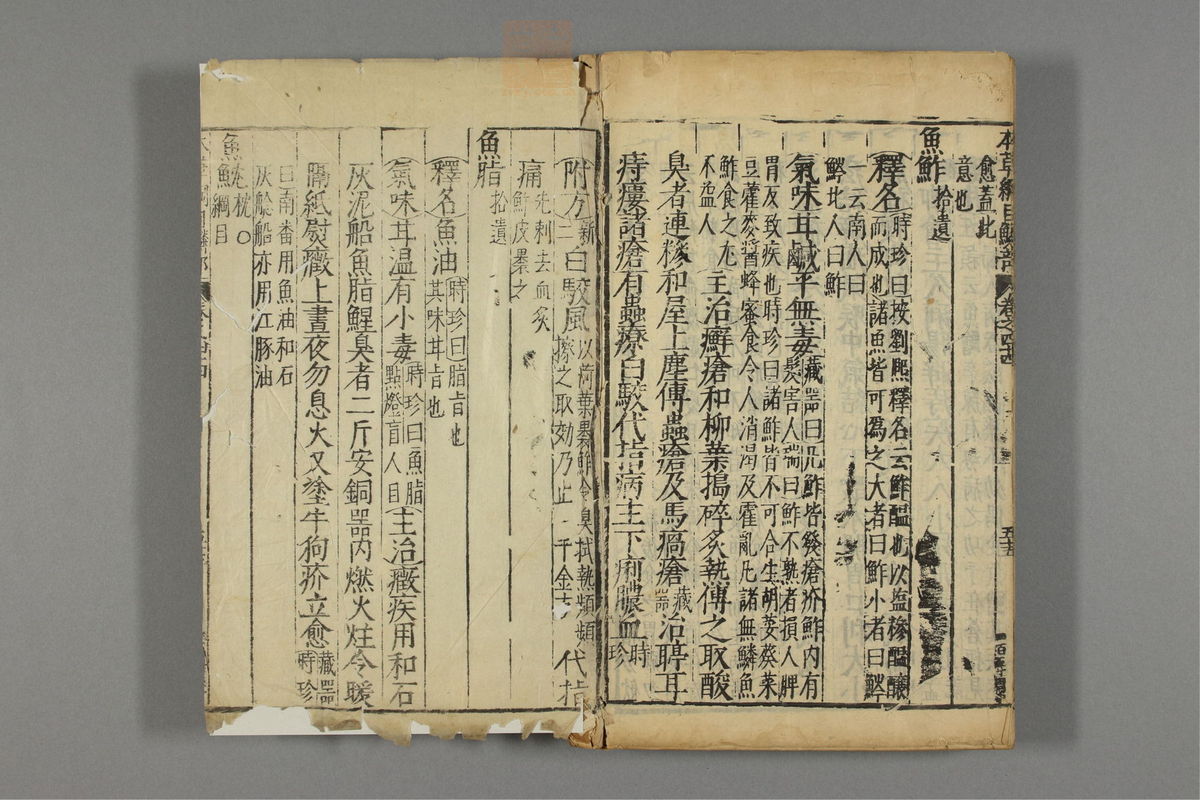 本草綱目鱗部 卷之四四 五十五
愈蓋此
意也
魚鮓拾遺
釋名時珍曰按劉熙釋名云鮓醞也以盐糝醞釀
而成也諸魚皆可爲之大者曰鮓小者曰鱃
一云南人曰
鱃北人曰鮓
氣味甘鹹平無毒藏器曰凡鮓皆發瘡疥鮓内有
髮害人瑞曰鮓不熟者損人脾
胃反致疾也時珍曰諸鮓皆不可合生胡荽葵菜
豆藿麥醬蜂蜜食令人消渴及霍亂凡諸無鱗魚
鮓食之尤
不益人
主治癬瘡和柳葉搗碎炙熱傅之取酸
臭者連糝和屋上塵傅蟲瘡及馬瘑瘡藏器治聤耳
痔瘻諸瘡有蟲療白駁代指病主下痢膿血時珍
附方新二白駁風以荷葉裹鮓令臭拭熱頻頻
擦之取効乃止千金方代指
痛先刺去血炙
鮓皮裹之
魚脂拾遺
釋名魚油時珍曰脂旨也
其味甘旨也
氣味甘温有小毒時珍曰魚脂
點燈盲人目主治癥疾用和石
灰泥船魚脂鯹臭者二斤安銅器内燃火炷令暖
隔紙熨癥上晝夜勿息火又塗牛狗疥立愈藏器
時珍
曰南番用魚油和石
灰艌船亦用江豚油
魚魫綱目